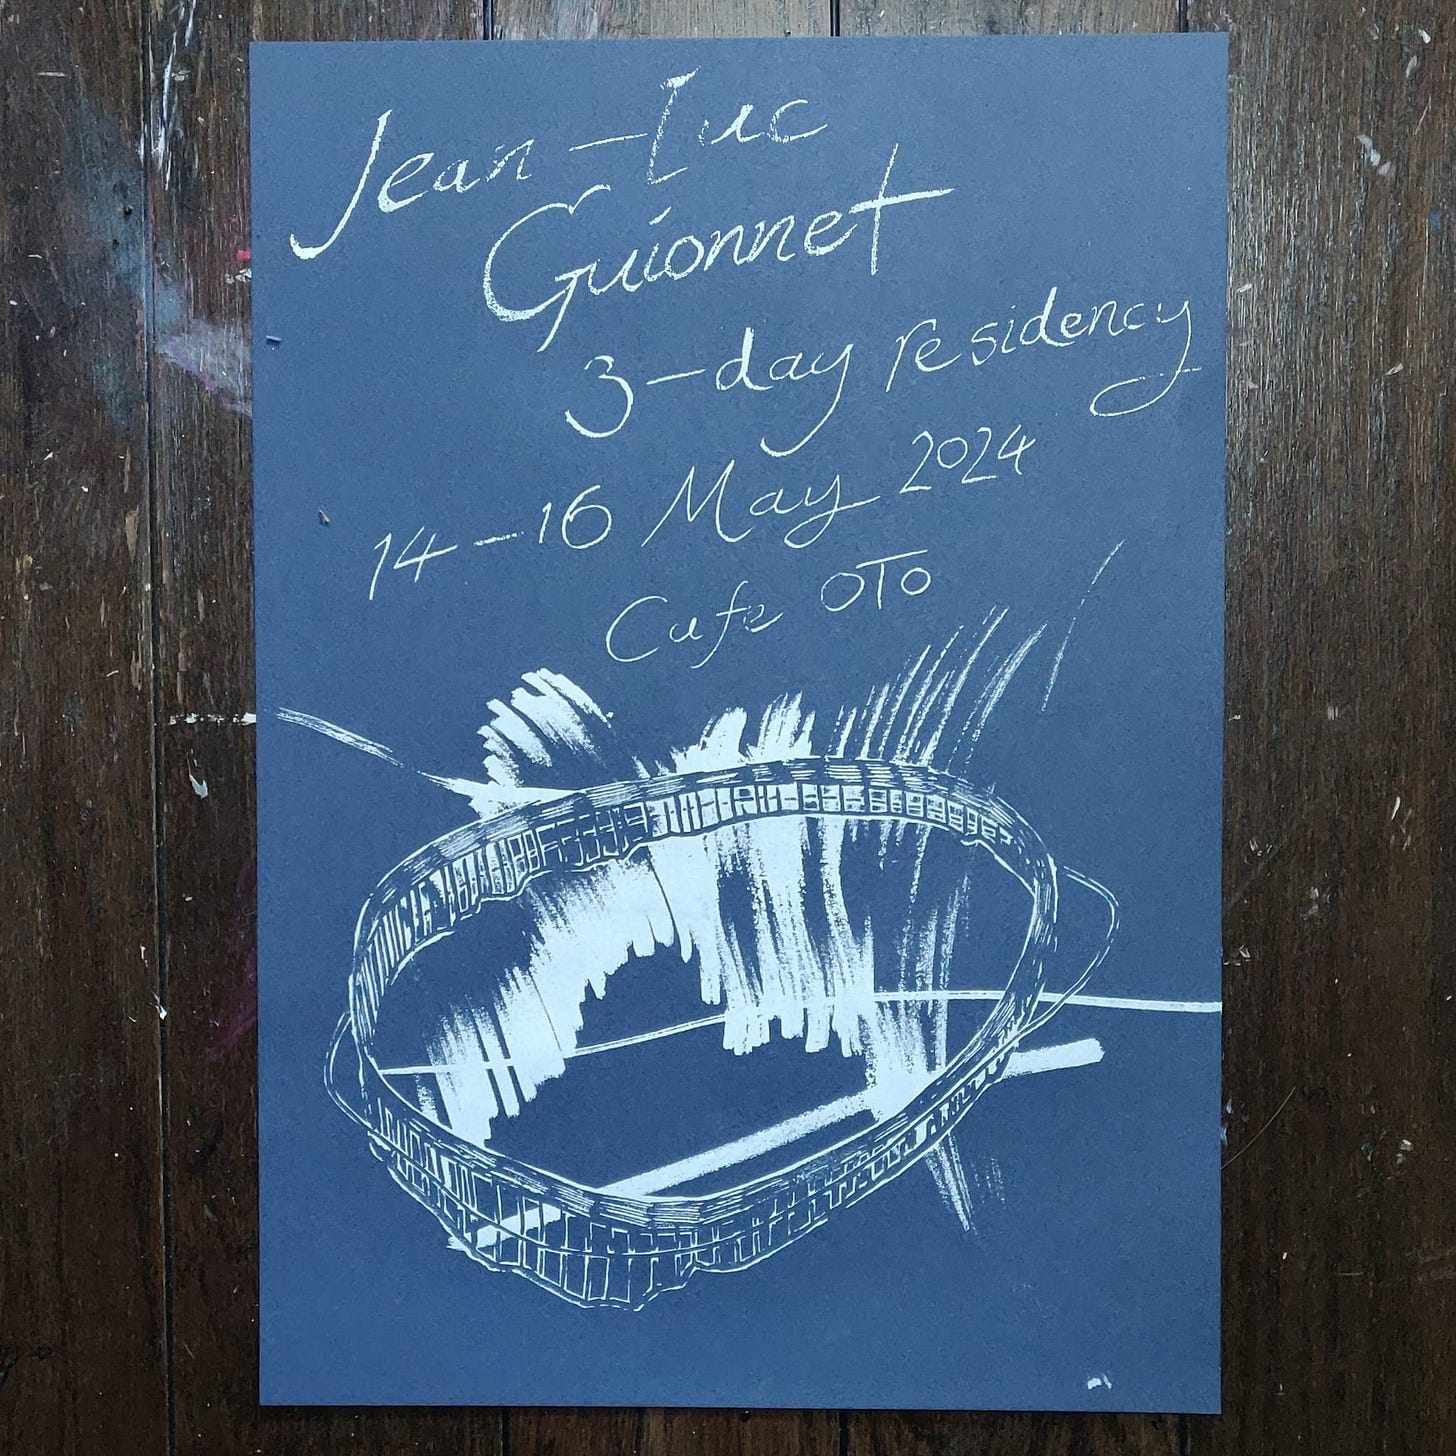 Jean-Luc
Guionnet
3-day residency
14-16 May 2024
Cafe OTO